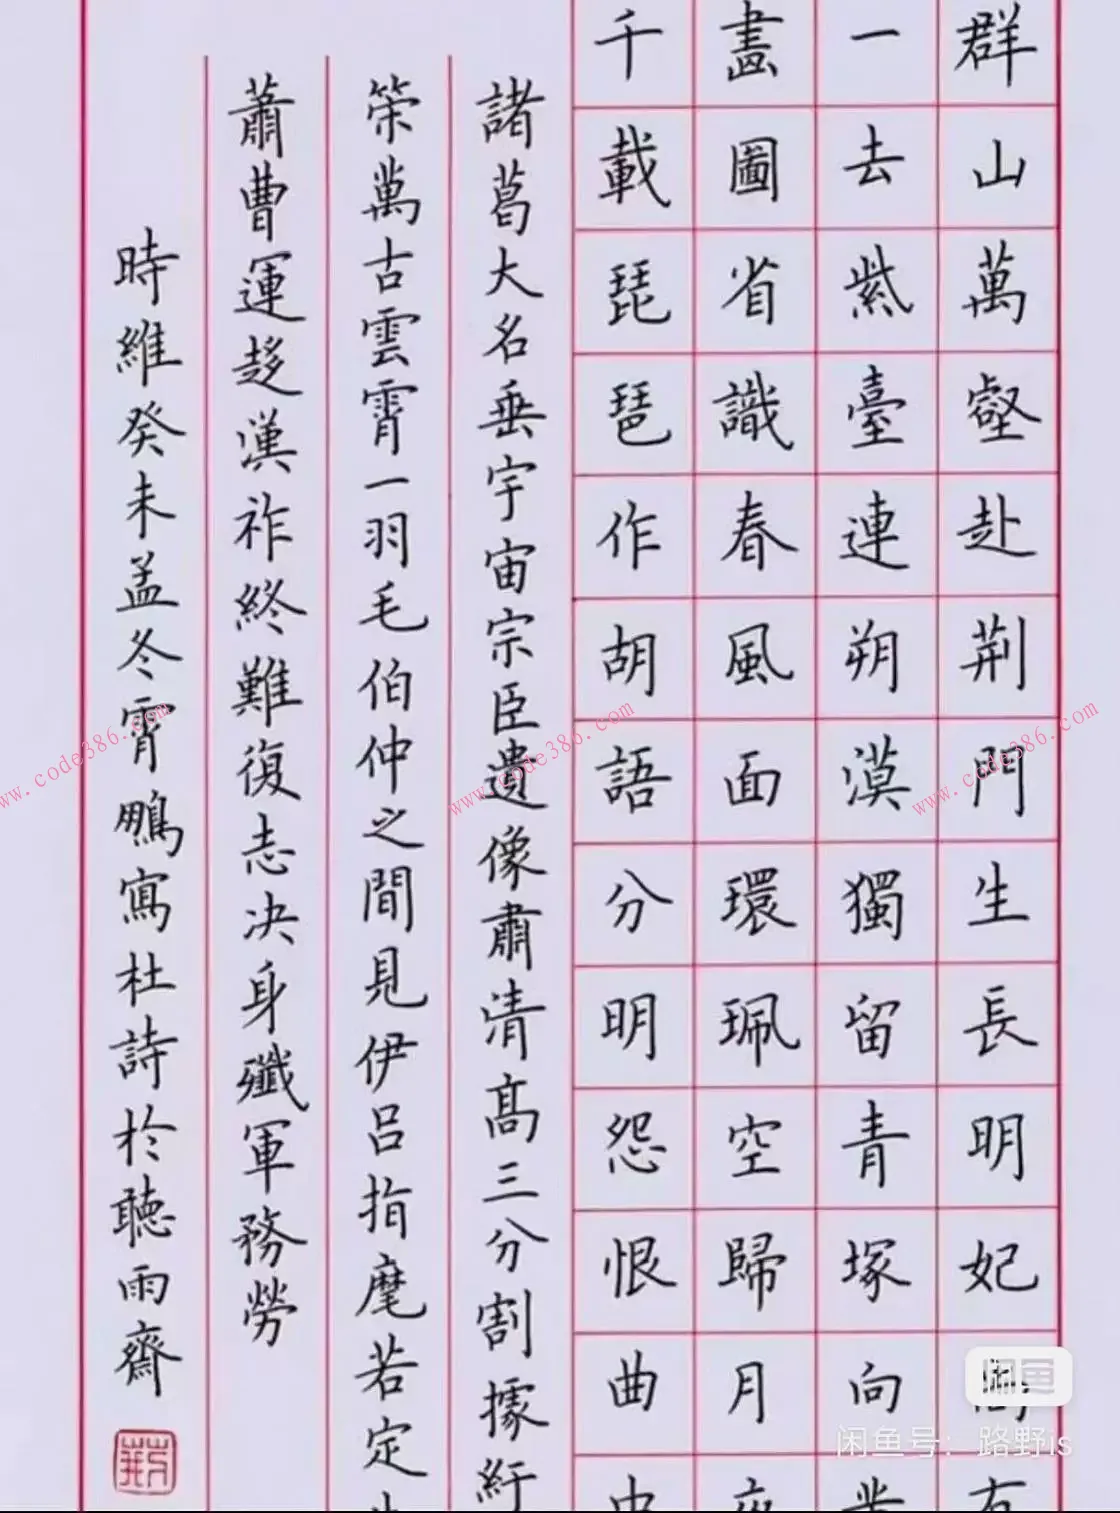 群山萬壑赴荆門生長明妃尚有
一去紫臺連朔漠獨留青塚向黄
畫圖省識春風面環珮空歸月夜
千載琵琶作胡語分明怨恨曲中
諸葛大名垂宇宙宗臣遺像肅清高三分割據紆
筞萬古雲霄一羽毛伯仲之間見伊吕指麾若定
蕭曹運趍漢祚終難復志决身殲軍務勞
時維癸未孟冬霄鵬寫杜詩於聽雨齋
www.code386.com
www.code386.com
www.code386.com
闲鱼
闲鱼号：路野is